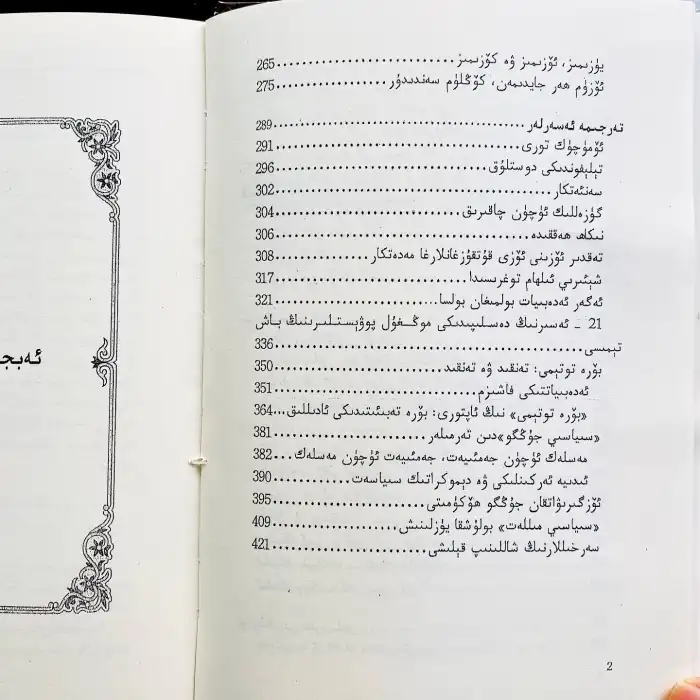 يۈزىمىز، ئۆزىمىز ۋە كۆزىمىز............................265
ئۆزۈم ھەر جايدىمەن، كۆڭلۈم سەندىدۇر.................275
تەرجىمە ئەسەرلەر......................................289
ئۆمۈچۈك تورى........................................291
تېلېفوندىكى دوستلۇق..................................296
سەنئەتكار..............................................302
گۈزەللىك ئۈچۈن چاقىرىق.............................304
نىكاھ ھەققىدە.........................................306
تەقدىر ئۆزىنى ئۆزى قۇتقۇزغانلارغا مەدەتكار...........308
شېئىرىي ئىلھام توغرىسىدا..............................317
ئەگەر ئەدەبىيات بولمىغان بولسا.......................321
21 ـ ئەسىرنىڭ دەسلىپىدىكى موڭغۇل پوۋېستلىرىنىڭ باش
تېمىسى................................................336
بۆرە توتېمى: تەنقىد ۋە تەنقىد.........................350
ئەدەبىياتتىكى فاشىزم..................................351
«بۆرە توتېمى» نىڭ ئاپتورى: بۆرە تەبىئىتىدىكى ئادىللىق...364
«سىياسىي جۇڭگو»دىن تەرمىلەر.......................381
مەسلەك ئۈچۈن جەمئىيەت، جەمئىيەت ئۈچۈن مەسلەك...382
ئىدىيە ئەركىنلىكى ۋە دېموكراتىك سىياسەت............390
ئۆزگىرىۋاتقان جۇڭگو ھۆكۈمىتى.......................395
«سىياسىي مىللەت» بولۇشقا يۈزلىنىش..................409
سەرخىللارنىڭ شاللىنىپ قېلىشى........................421
2